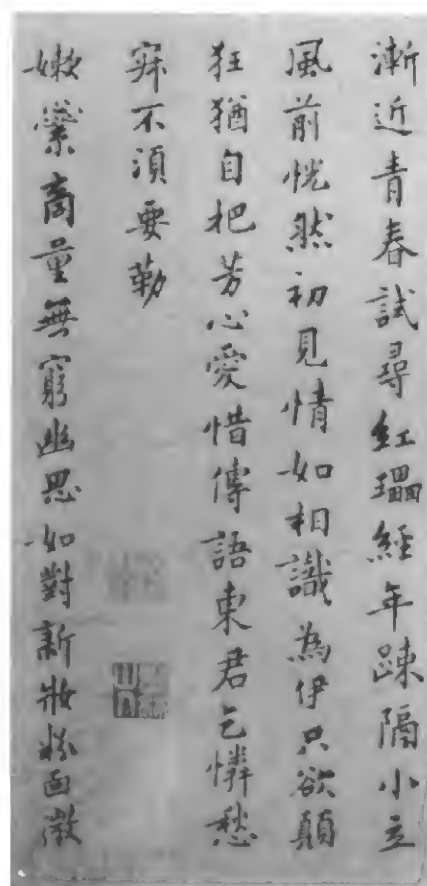 漸近青春試尋紅瓃經年疎隔小立
風前恍然初見情如相識為伊只欲顛
狂猶自把芳心愛惜傳語東君乞憐愁
寂不須要勒
嫩蘂商量無窮幽思如對新妝粉面微